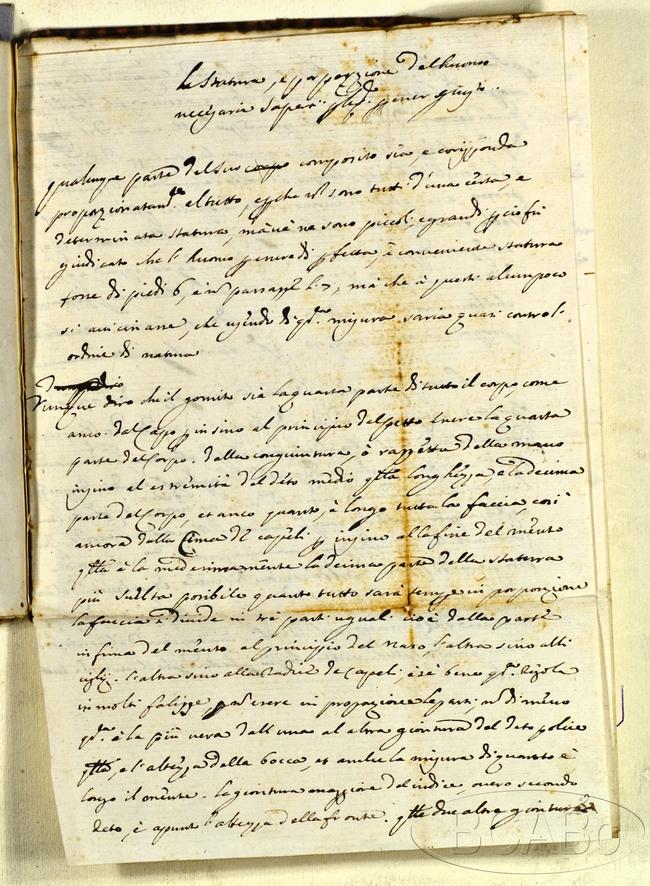 La statura, e proporzione del huomo
necessaria sapersi
qualunque parte del suo corpo composito sia, e corrisponda
proporzionatam.te al tutto, e che no sono tutti d'una certa, e
determinata statura, ma ve ne sono piccoli, e grandi
giudicato che l'huomo, è conveniente statura
fosse di piedi 6, e no passasse li 7, ma che à questi alcun poco
si avicinasse, che essendo di q.sta misura saria quasi contro l'
ordine di natura
Dunque diro che il gomito sia la quarta parte di tutto il corpo, come
anco dal Capo insino al principio del petto la quarta
parte del Corpo. dalla congiuntura, ò della mano
insino al estremità del déto medio longhezza, è la decima
parte del Corpo, et anco quanto è longo tutta la faccia, cosi
ancora dalla Cima de capeli insino alla fine del mento
è la medesimamente la decima parte della statura
più sullta posibile quanto tutto sarà sempre in proporzione
la faccia si divide in tre parti uguali cioè dalla parte
infima del mento al principio del naso l'altra sino alli
cigli. l'altra sino alla radice de Capeli è se bene q.sta Regola
in molti falisse, in proporzione le parti, no di meno
q.sta è la più vera dall una al altra giontura del deto police
e l'altezza della bocca, et anche la misura di quanto è
longo il mento. la giontura maggiore del indice, overo secondo
deto, è apunto l'altezza della fronte. due altre gionture
BCABo